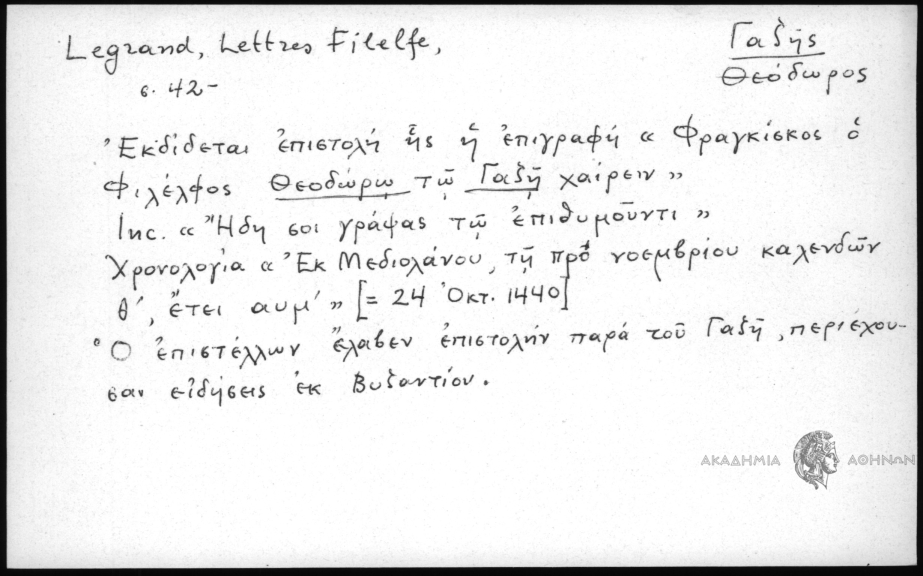 Legrand, Lettres Filelfe,
Γαζῆς
Θεόδωρος
σ. 42-
Ἐκδίδεται ἐπιστολή ἧς ἡ ἐπιγραφή « Φραγκίσκος ὁ
Φιλέλφος Θεοδώρῳ τῷ Γαζῇ χαίρειν »
Inc. « Ἤδη σοι γράψας τῷ ἐπιθυμοῦντι »
Χρονολογία « Ἐκ Μεδιολάνου, τῇ πρό νοεμβρίου καλενδῶν
θ΄, ἔτει αυμ΄ » [= 24 Ὀκτ. 1440]
Ὁ ἐπιστέλλων ἔλαβεν ἐπιστολήν παρά τοῦ Γαζῆ, περιέχου-
σαν εἰδήσεις ἐκ Βυζαντίου.
ΑΚΑΔΗΜΙΑ ΑΘΗΝΩΝ